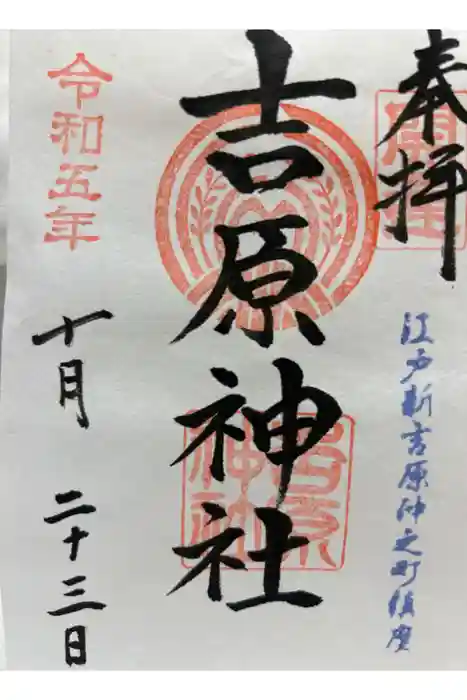 奉拝
江戸新吉原仲之町鎮座
吉原神社
令和五年
十月
二十三日
吉原
神社